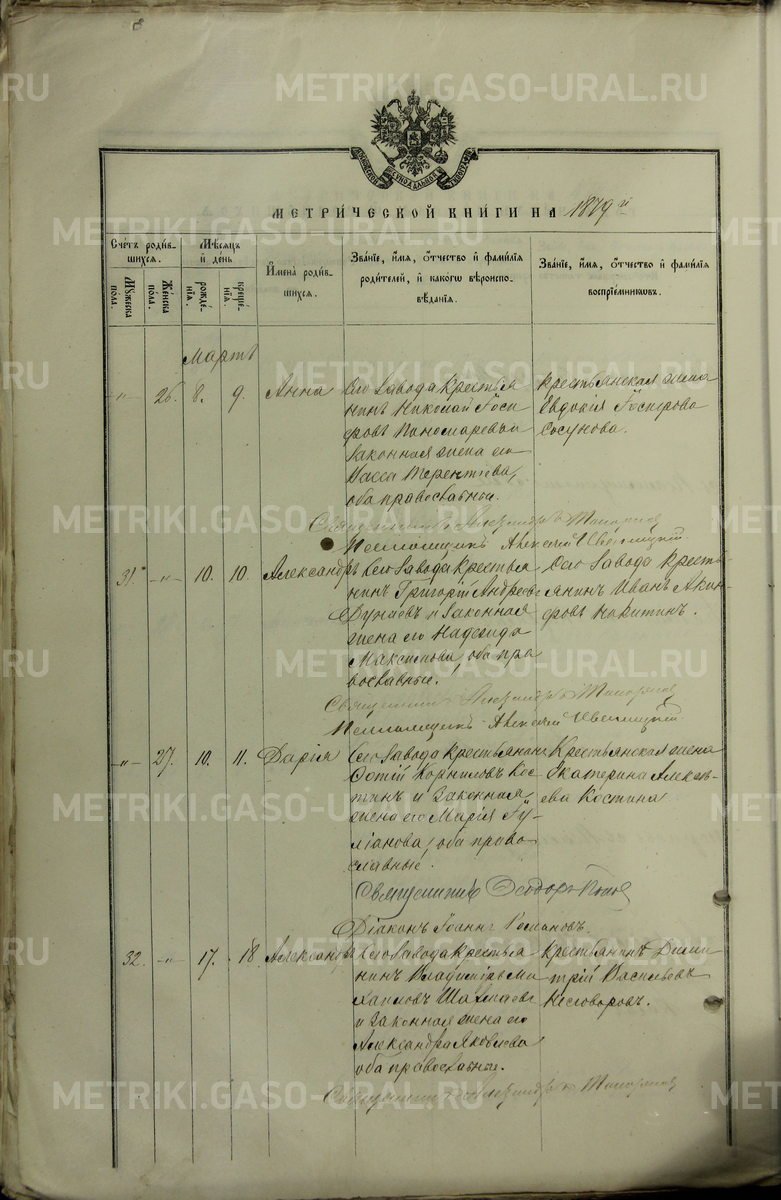 METRIKI.GASO-URAL.RU
МЕТРИ́ЧЕСКОЙ КНИГИ НА 1879 й
Счетъ родившихся.
Мѣсяцъ и день
Имена родившихся.
Званіе, имя, отчество и фамилія родителей, и какого вѣроисповѣданія.
Званіе, имя, отчество и фамилія воспріемниковъ.
Мужеска пола.
Женска пола.
рожденія.
крещенія.
Мартъ
" 26. 8. 9. Анна
Сего Завода крестья
нинъ Николай Госи
феровъ Пономаревъ и
законная жена его
Васса Терентьева,
оба православные.
Крестьянская жена
Евдокія
Сосунова.
Священникъ Александръ Топорковъ
Псаломщикъ Алексѣй
31. -"- 10. 10. Александръ
Сего Завода крестья
нинъ Григорій Андреевъ
Дунаевъ и законная
жена его Надежда
Максимова, оба пра
вославные.
Сего Завода кресть-
янинъ Иванъ
Никитинъ.
Священникъ Александръ Топорковъ
Псаломщикъ Алексѣй
-"- 27. 10. 11. Дарія
Сего Завода крестьянинъ
Фотій Корниловъ Кос
тинъ и законная
жена его Марія Іу-
ліанова, оба право
славные.
Крестьянская жена
Екатерина Алексѣ-
ева Костина
Священникъ Феодоръ Попов
Діаконъ Іоаннъ Романовъ.
32. -"- 17. 18. Александръ
Сего Завода крестья
нинъ Владиміръ Ми
хаиловъ
и законная жена его
Александра Яковлева
оба православные.
Крестьянинъ Дими
трій Васильевъ
Несговоровъ.
Священникъ Александръ Топорковъ